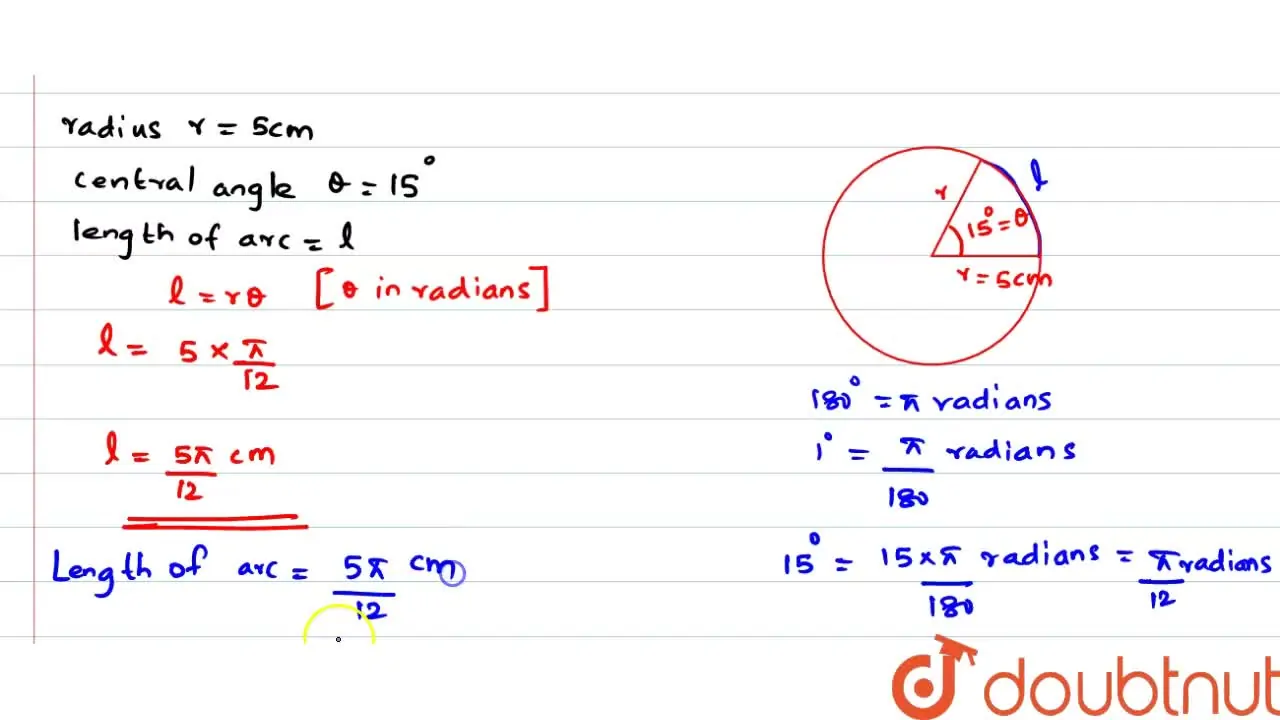 radius r = 5cm
central angle θ = 15°
length of arc = l
l = rθ [θ in radians]
l = 5 × π/12
l = 5π/12 cm
Length of arc = 5π/12 cm
l
r
15° = θ
r = 5cm
180° = π radians
1° = π/180 radians
15° = 15×π/180 radians = π/12 radians
doubtnut